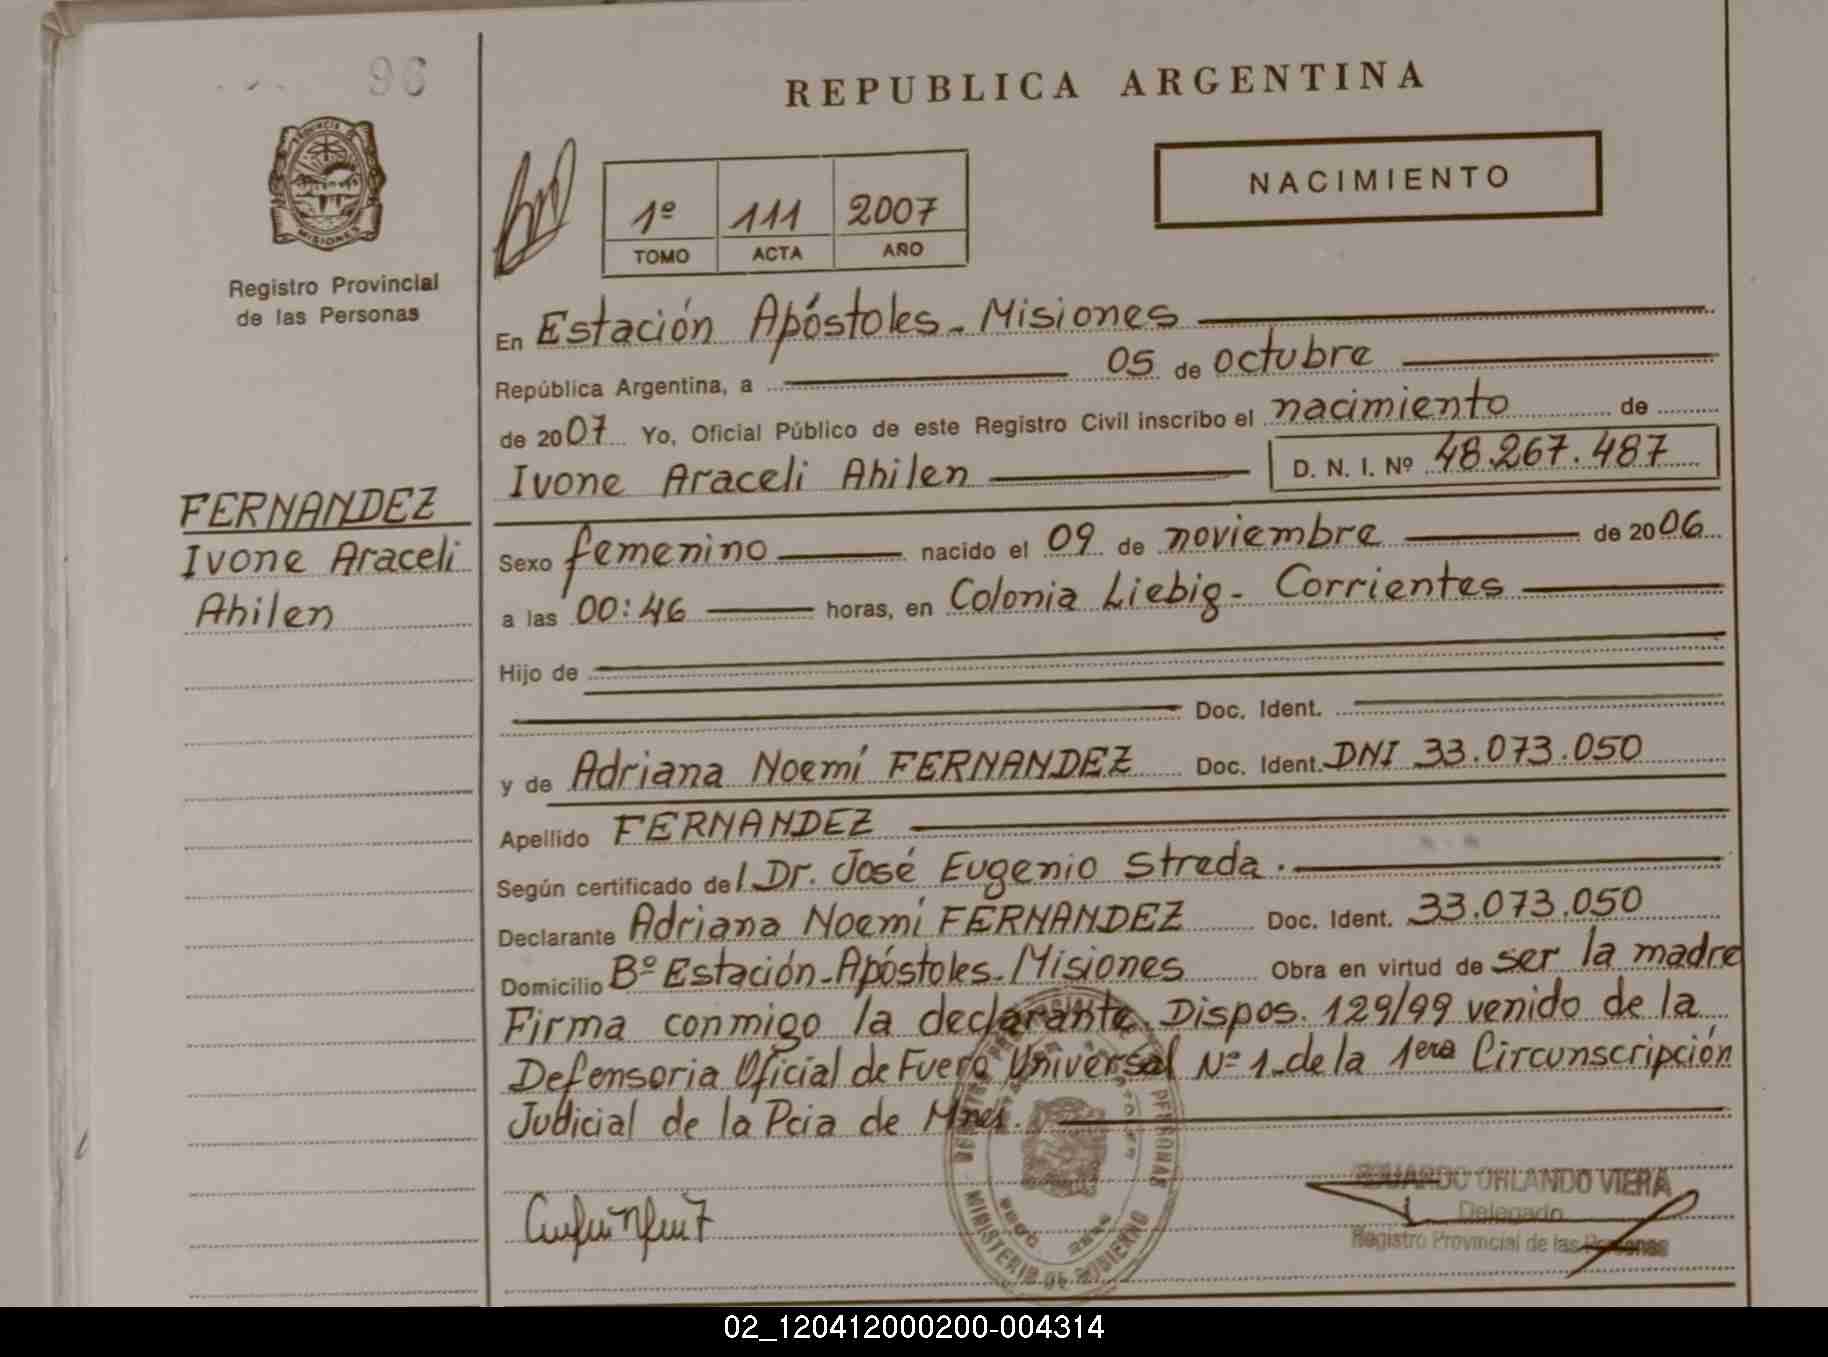 96
REPUBLICA ARGENTINA
NACIMIENTO
1º 111 2007
TOMO ACTA AÑO
PROVINCIA DE MISIONES
Registro Provincial
de las Personas
En Estación Apóstoles - Misiones
República Argentina, a 05 de octubre
de 2007 Yo, Oficial Público de este Registro Civil inscribo el nacimiento de
Ivone Araceli Ahilen D. N. I. Nº 48.267.487
FERNANDEZ
Ivone Araceli
Ahilen
Sexo femenino nacido el 09 de noviembre de 2006
a las 00:46 horas, en Colonia Liebig - Corrientes
Hijo de
Doc. Ident.
y de Adriana Noemí FERNANDEZ Doc. Ident. DNI 33.073.050
Apellido FERNANDEZ
Según certificado del Dr. José Eugenio Streda.
Declarante Adriana Noemí FERNANDEZ Doc. Ident. 33.073.050
Domicilio Bº Estación - Apóstoles - Misiones Obra en virtud de ser la madre
Firma conmigo la declarante. Dispos. 129/99 venido de la
Defensoria Oficial de Fuero Universal Nº 1 - de la 1era Circunscripción
Judicial de la Pcia de Mnes.
MINISTERIO DE GOBIERNO
EDUARDO ORLANDO VIERA
Delegado
Registro Provincial de las Personas
02_120412000200-004314